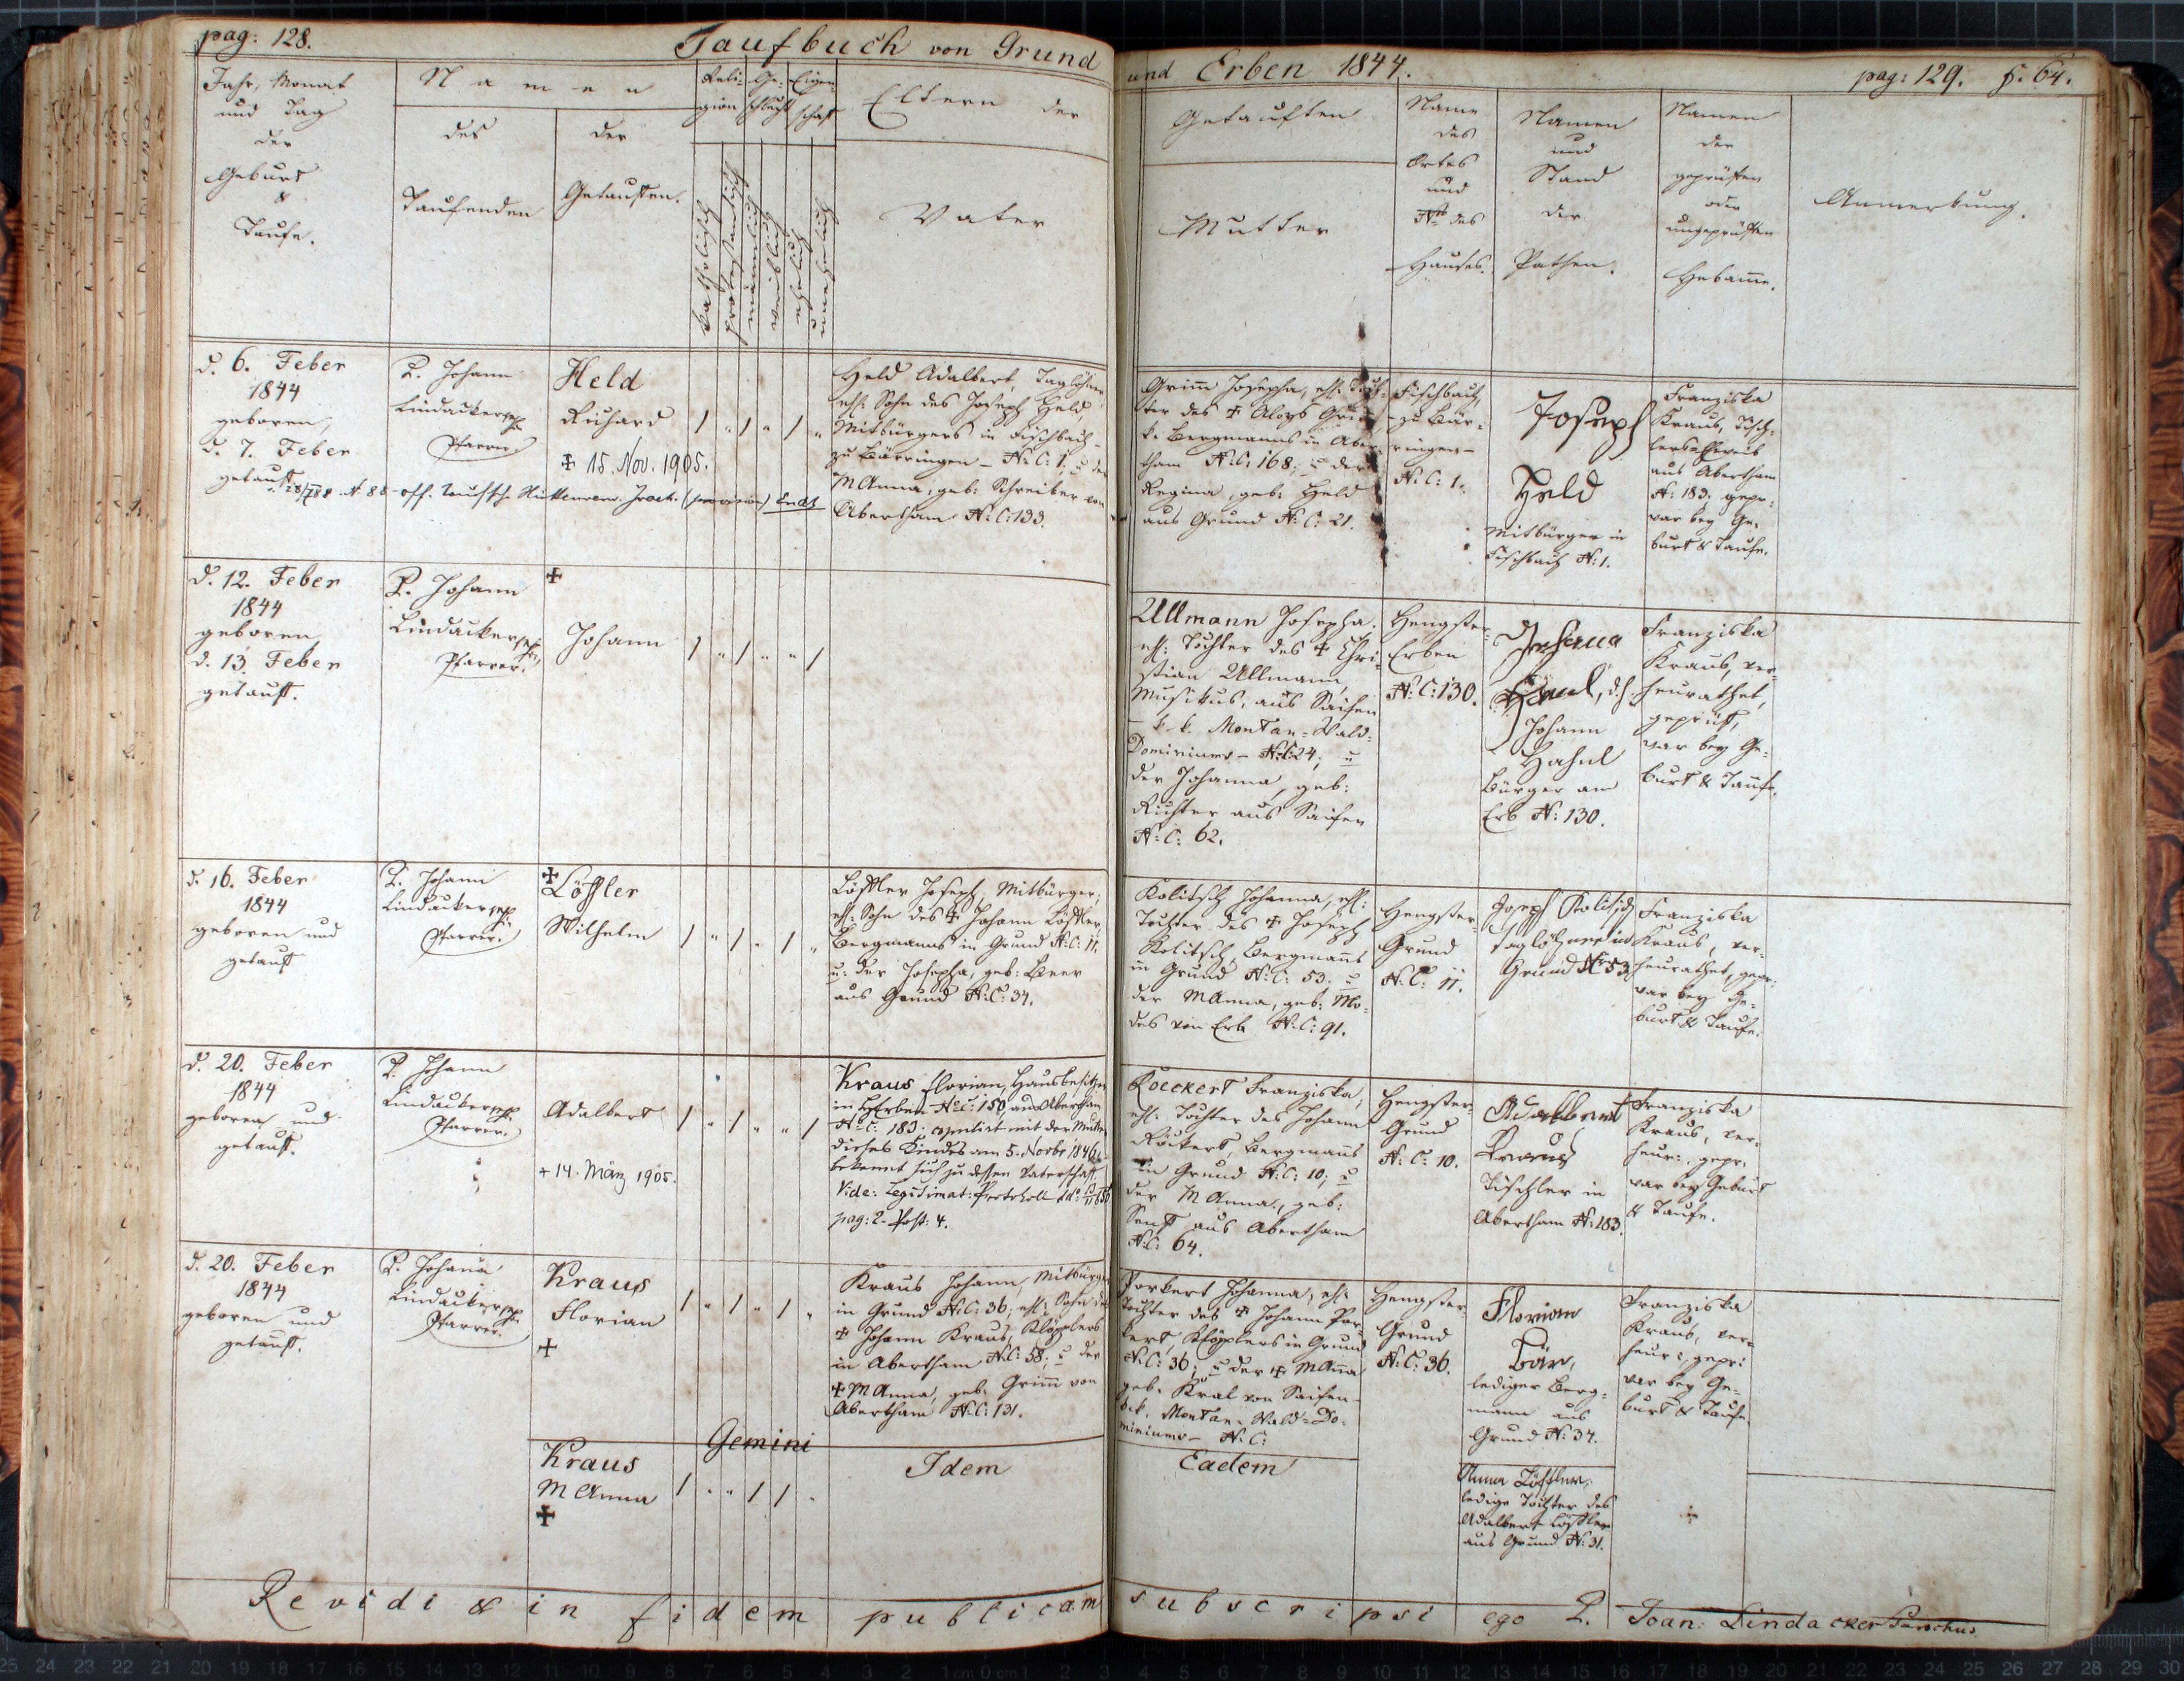 pag: 128.
Taufbuch von Grund
und Erben 1844.
pag: 129. f. 64.
Jahr, Monat
und Tag
der
Geburt
&
Taufe.
Namen
des
Taufenden
der
Getauften.
Reli-
gion
Ge-
schlecht
Eigen-
schaft
katholisch
protestantisch
männlich
weiblich
ehelich
unehelich
Eltern der
Vater
Getauften
Mutter
Name
des
Ortes
und
Nro des
Hauses.
Namen
und
Stand
der
Pathen.
Namen
der
geprüften
oder
ungeprüften
Hebamme.
Anmerkung.
d. 6. Feber
1844
geboren,
d. 7. Feber
getauft
P. Johann
Lindacker
Pfarrer
Held
Richard
✠ 15. Nov. 1905.
Held Adalbert, Taglöhner,
ehl: Sohn des Joseph Held
Mitbürgers in Fischbach -
zu Bärringen - N:C: 1, u der
M Anna, geb: Schreiber von
Abertham N:C: 133.
Grimm Josepha, ehl: Toch-
ter des ✠ Aloys Grimm
k. Bergmanns in Aber-
tham N:C: 168; u der
Regina, geb: Held
aus Grund N:C: 21.
Fischbach,
- zu Bär-
ringen -
N:C: 1.
Joseph
Held
Mitbürger in
Fischbach N: 1.
Franziska
Kraus, Tisch-
lers-Weib
aus Abertham
N: 183. gepr:
war bey Ge-
burt & Taufe.
d. 12. Feber
1844
geboren,
d. 13. Feber
getauft.
P. Johann
Lindacker
Pfarrer.
✠
Johann
Ullmann Josepha.
ehl: Tochter des ✠ Chri-
stian Ullmann,
Musikus, aus Saifen
- k. k. Montan-Wald-
Dominiums - N:C: 24; u
der Johanna, geb:
Richter aus Saifen
N:C: 62.
Hengster-
Erben
N:C: 130.
Johann
Hahnl
Bürger am
Erb N: 130.
Franziska
Kraus, ver-
heurathet,
geprüft,
war bey Ge-
burt & Taufe.
d. 16. Feber
1844
geboren und
getauft
P. Johann
Lindacker
Pfarrer.
✠
Löffler
Wilhelm
Löffler Joseph, Mitbürger,
ehl: Sohn des ✠ Johann Löffler,
Bergmanns in Grund N:C: 11.
u: der Josepha, geb: Beer
aus Grund N:C: 34.
Kolitsch Johanna, ehl:
Tochter des ✠ Joseph
Kolitsch, Bergmanns
in Grund N:C: 53. u
der M Anna, geb: Mo-
des von Erb N:C: 91.
Hengster-
Grund
N:C: 11.
Joseph Kolitsch
Taglöhner in
Grund N 53
Franziska
Kraus, ver-
heurathet, gepr:
war bey Ge-
burt & Taufe.
d. 20. Feber
1844
geboren und
getauft.
P. Johann
Lindacker
Pfarrer.
Adalbert
+ 14. März 1905.
Kraus Florian, Hausbesitzer
in H Erben No C: 150, aus Abertham
No C: 183. copulirt mit der Mutter
dieses Kindes am 5. Novbr 1846
bekennt sich zu dessen Vaterschaft.
Vide: Legitimat: Protokoll
pag: 2. Post: 4.
Roeckert Franziska,
ehl: Tochter des Johann
Röckert, Bergmanns
in Grund N:C: 10; u
der M Anna, geb:
Senft aus Abertham
N:C: 64.
Hengster-
Grund
N:C: 10.
Adalbert
Kraus
Tischler in
Abertham N: 183.
Franziska
Kraus, ver-
heur:, gepr:
war bey Geburt
& Taufe.
d. 20. Feber
1844
geboren und
getauft.
P. Johann
Lindacker
Pfarrer.
Kraus
Florian
✠
Kraus Johann, Mitbürger
in Grund N:C: 36; ehl: Sohn des
✠ Johann Kraus, Klöpplers
in Abertham N:C: 58; u der
✠ M Anna, geb: Grimm von
Abertham N:C: 131.
Porkert Johanna, ehl:
Tochter des ✠ Johann Por-
kert, Klöpplers in Grund
N:C: 36; u der ✠ M Anna
geb: Kral von Saifen -
k. k. Montan-Wald-Do-
miniums - N:C:
Hengster-
Grund
N:C: 36.
Florian
Bär,
lediger Berg-
mann aus
Grund N: 34.
Franziska
Kraus, ver-
heur:, gepr:
war bey Ge-
burt & Taufe.
Gemini
Kraus
M Anna
✠
Idem
Eadem
Anna Löffler,
ledige Tochter des
Adalbert Löffler
aus Grund N: 31.
Revidi & in fidem publicam subscripsi ego P. Joan: Lindacker Parochus.